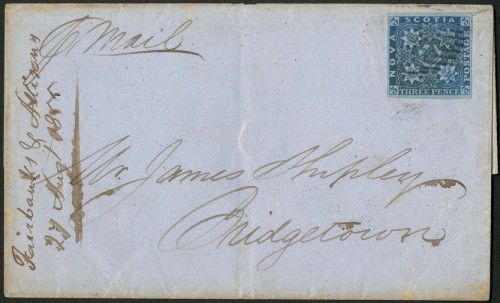 ℘ Mail
NOVA SCOTIA POSTAGE
THREE PENCE
Mr. James Shipley
Bridgetown
Fairbanks &
27 Aug 1855